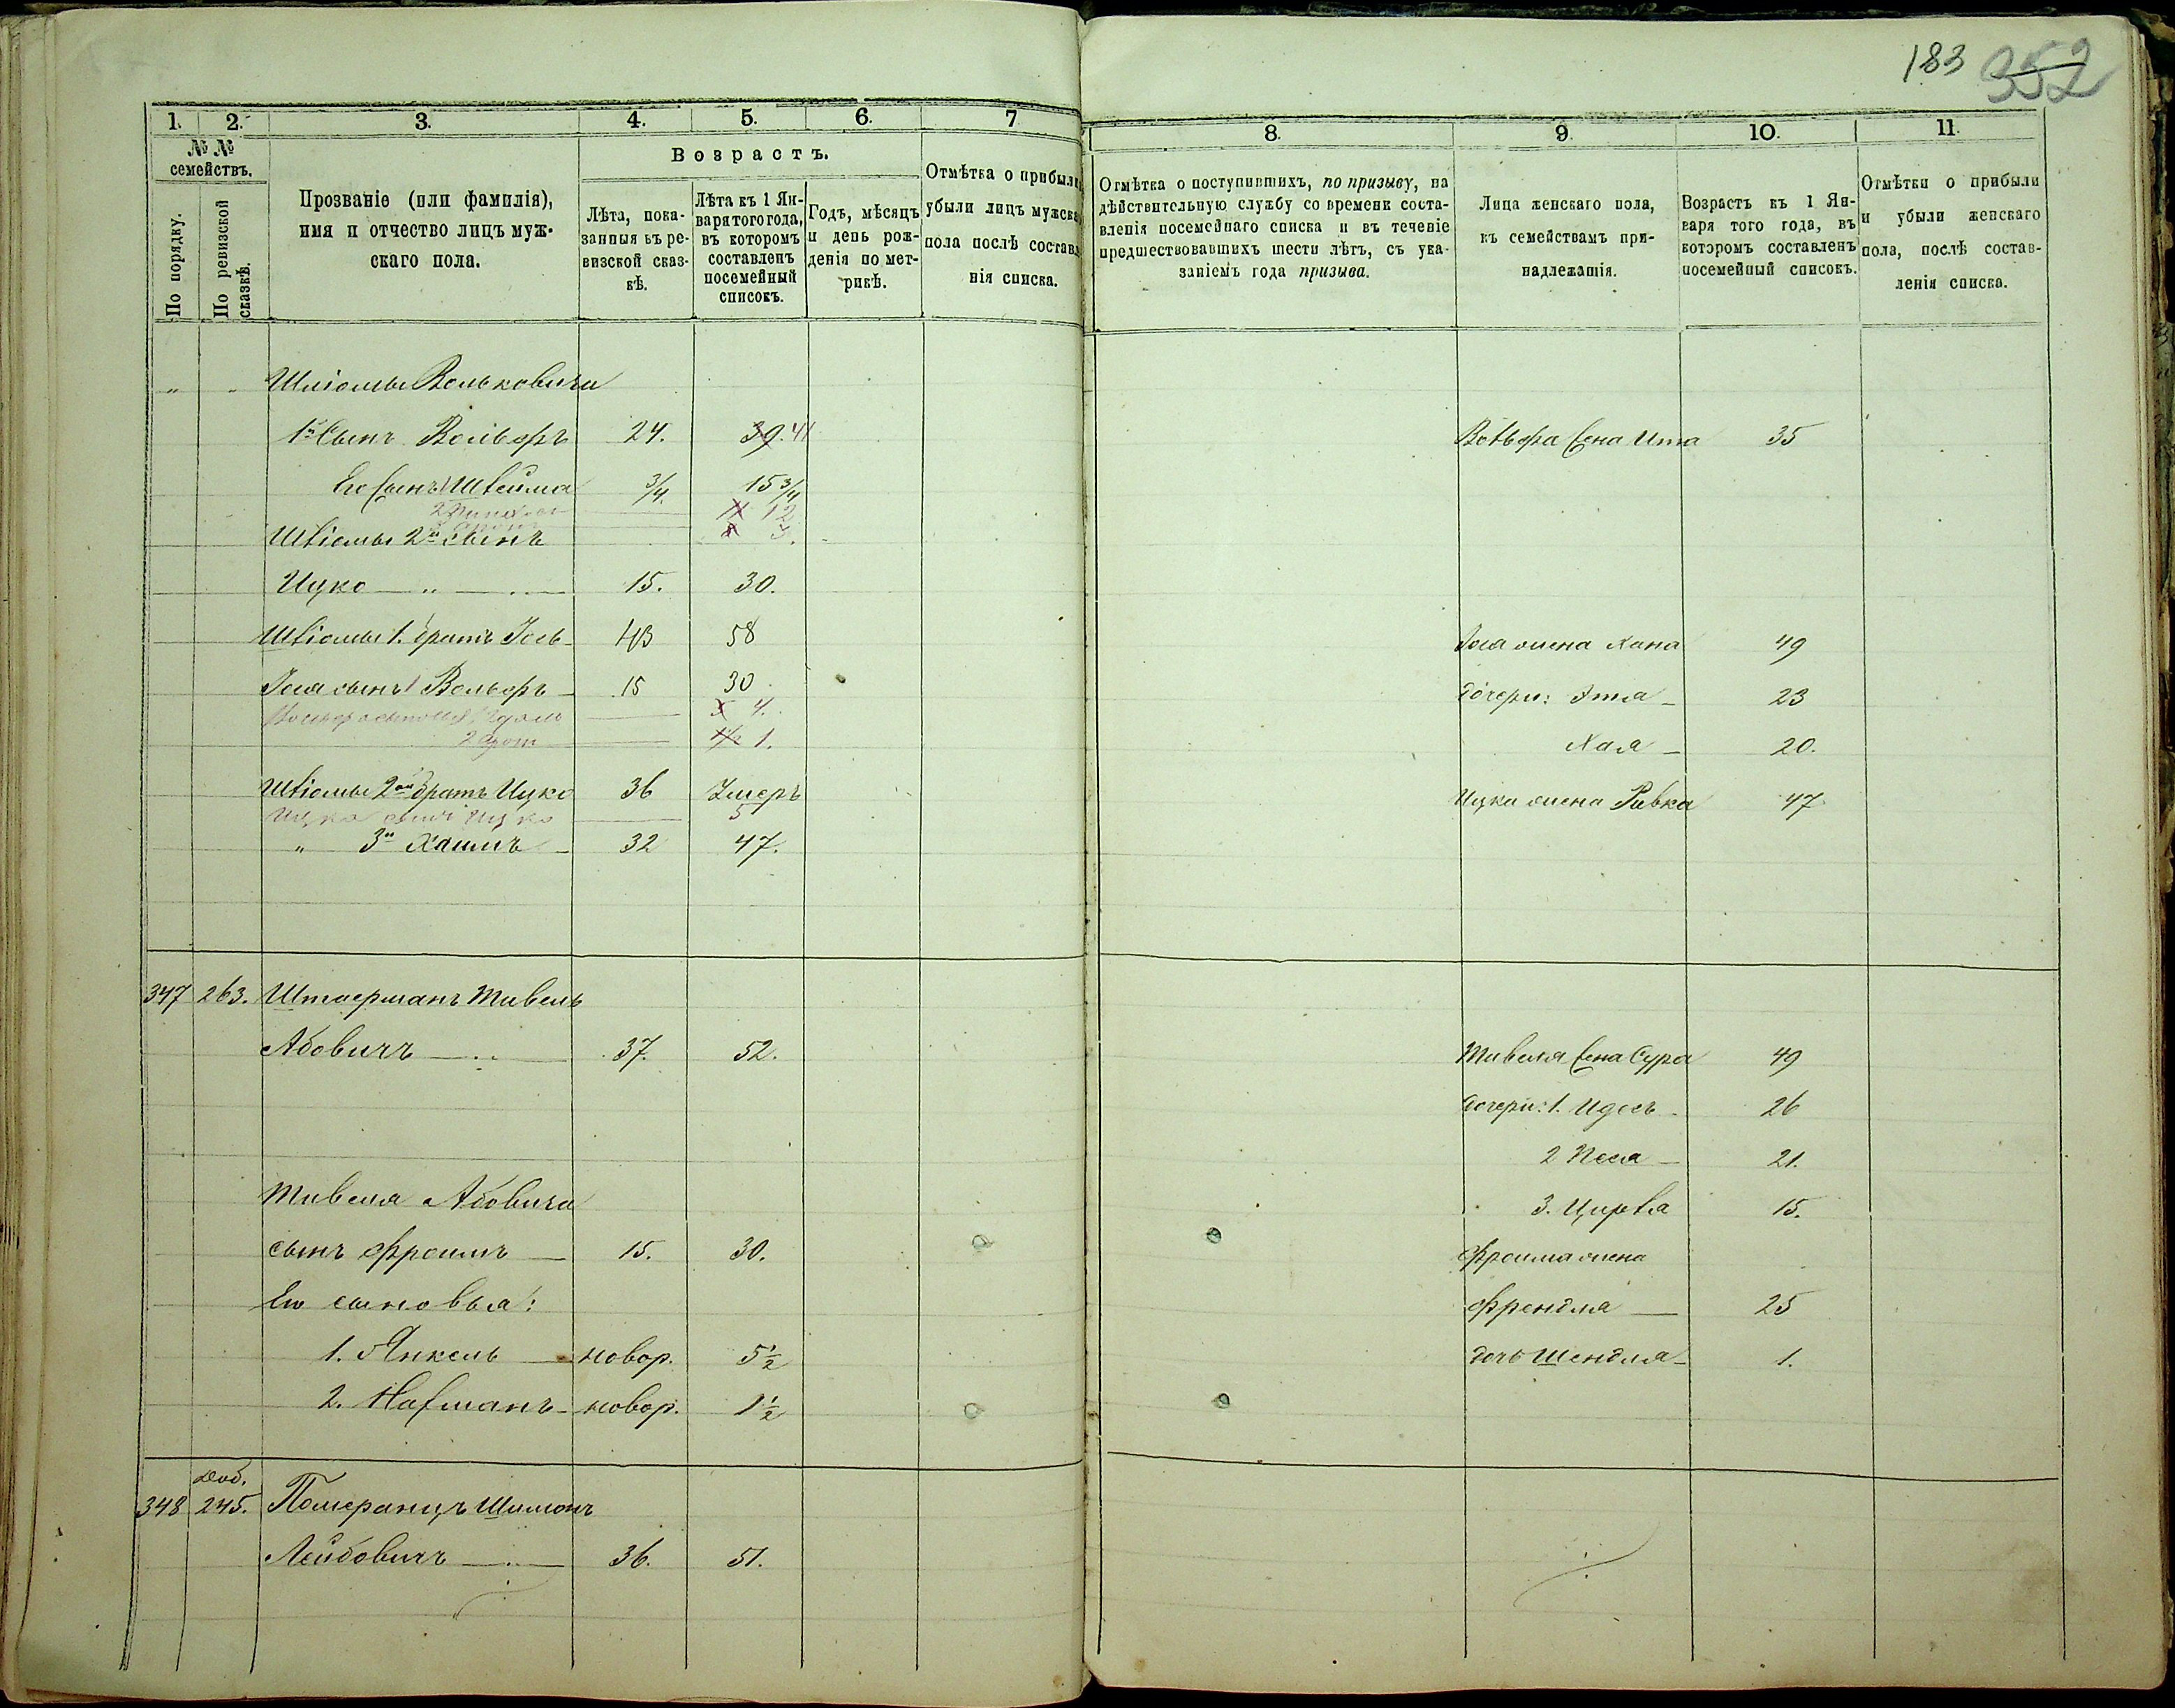 183 352
1. 2. 3. 4. 5. 6. 7 8. 9. 10. 11.
№ № семействъ.
По порядку.
По ревизской сказкѣ.
Прозваніе (или фамилія), имя и отчество лицъ мужскаго пола.
Возрастъ.
Лѣта, показанныя въ ревизской сказкѣ.
Лѣта къ 1 Января того года, въ которомъ составленъ посемейный списокъ.
Годъ, мѣсяцъ и день рожденія по метрикѣ.
Отмѣтка о прибыли убыли лицъ мужска пола послѣ составл нія списка.
Отмѣтка о поступившихъ, по призыву, на дѣйствительную службу со времени составленія посемейнаго списка и въ теченіе предшествовавшихъ шести лѣтъ, съ указаніемъ года призыва.
Лица женскаго пола, къ семействамъ принадлежащія.
Возрастъ къ 1 Января того года, въ которомъ составленъ посемейный списокъ.
Отмѣтки о прибыли и убыли женскаго пола, послѣ составленія списка.
" " Шліомы Вольковича
1й Сынъ Вольфъ 24. 39. 41 Вольфа жена Ита 35
Его сынъ 1 Шлейма 3/4. 15 3/4
2 11 12
3. Шліомы 2й сынъ
Ицко 15. 30.
Шліомы 1. братъ Іось 43 58 Іося жена Хана 49
Іося сынъ 1 Вольфъ 15 30 дочери: Этля 23
4.
2 1 1/2 1. Хая 20.
Шліомы 2ой братъ Ицко 36 Умеръ Ицки жена Ривка 47
Ицко сынъ Ицко 5
" 3й Хаимъ 32 47.
347 263. Штаерманъ Тивель
Абовичъ 37. 52. Тивеля жена Сура 49
дочери: 1. Идесъ 26
2 Песя 21.
Тивеля Абовича 3. Цирля 15.
сынъ Фроимъ 15. 30. Фроима жена
Его сыновья: Френдля 25
1. Янкель новор. 5 1/2 дочь Шендля 1.
2. Нафманъ новор. 1 1/2
348 Доб. 245. Померанцъ Шимонъ
Лейбовичъ 36. 51.